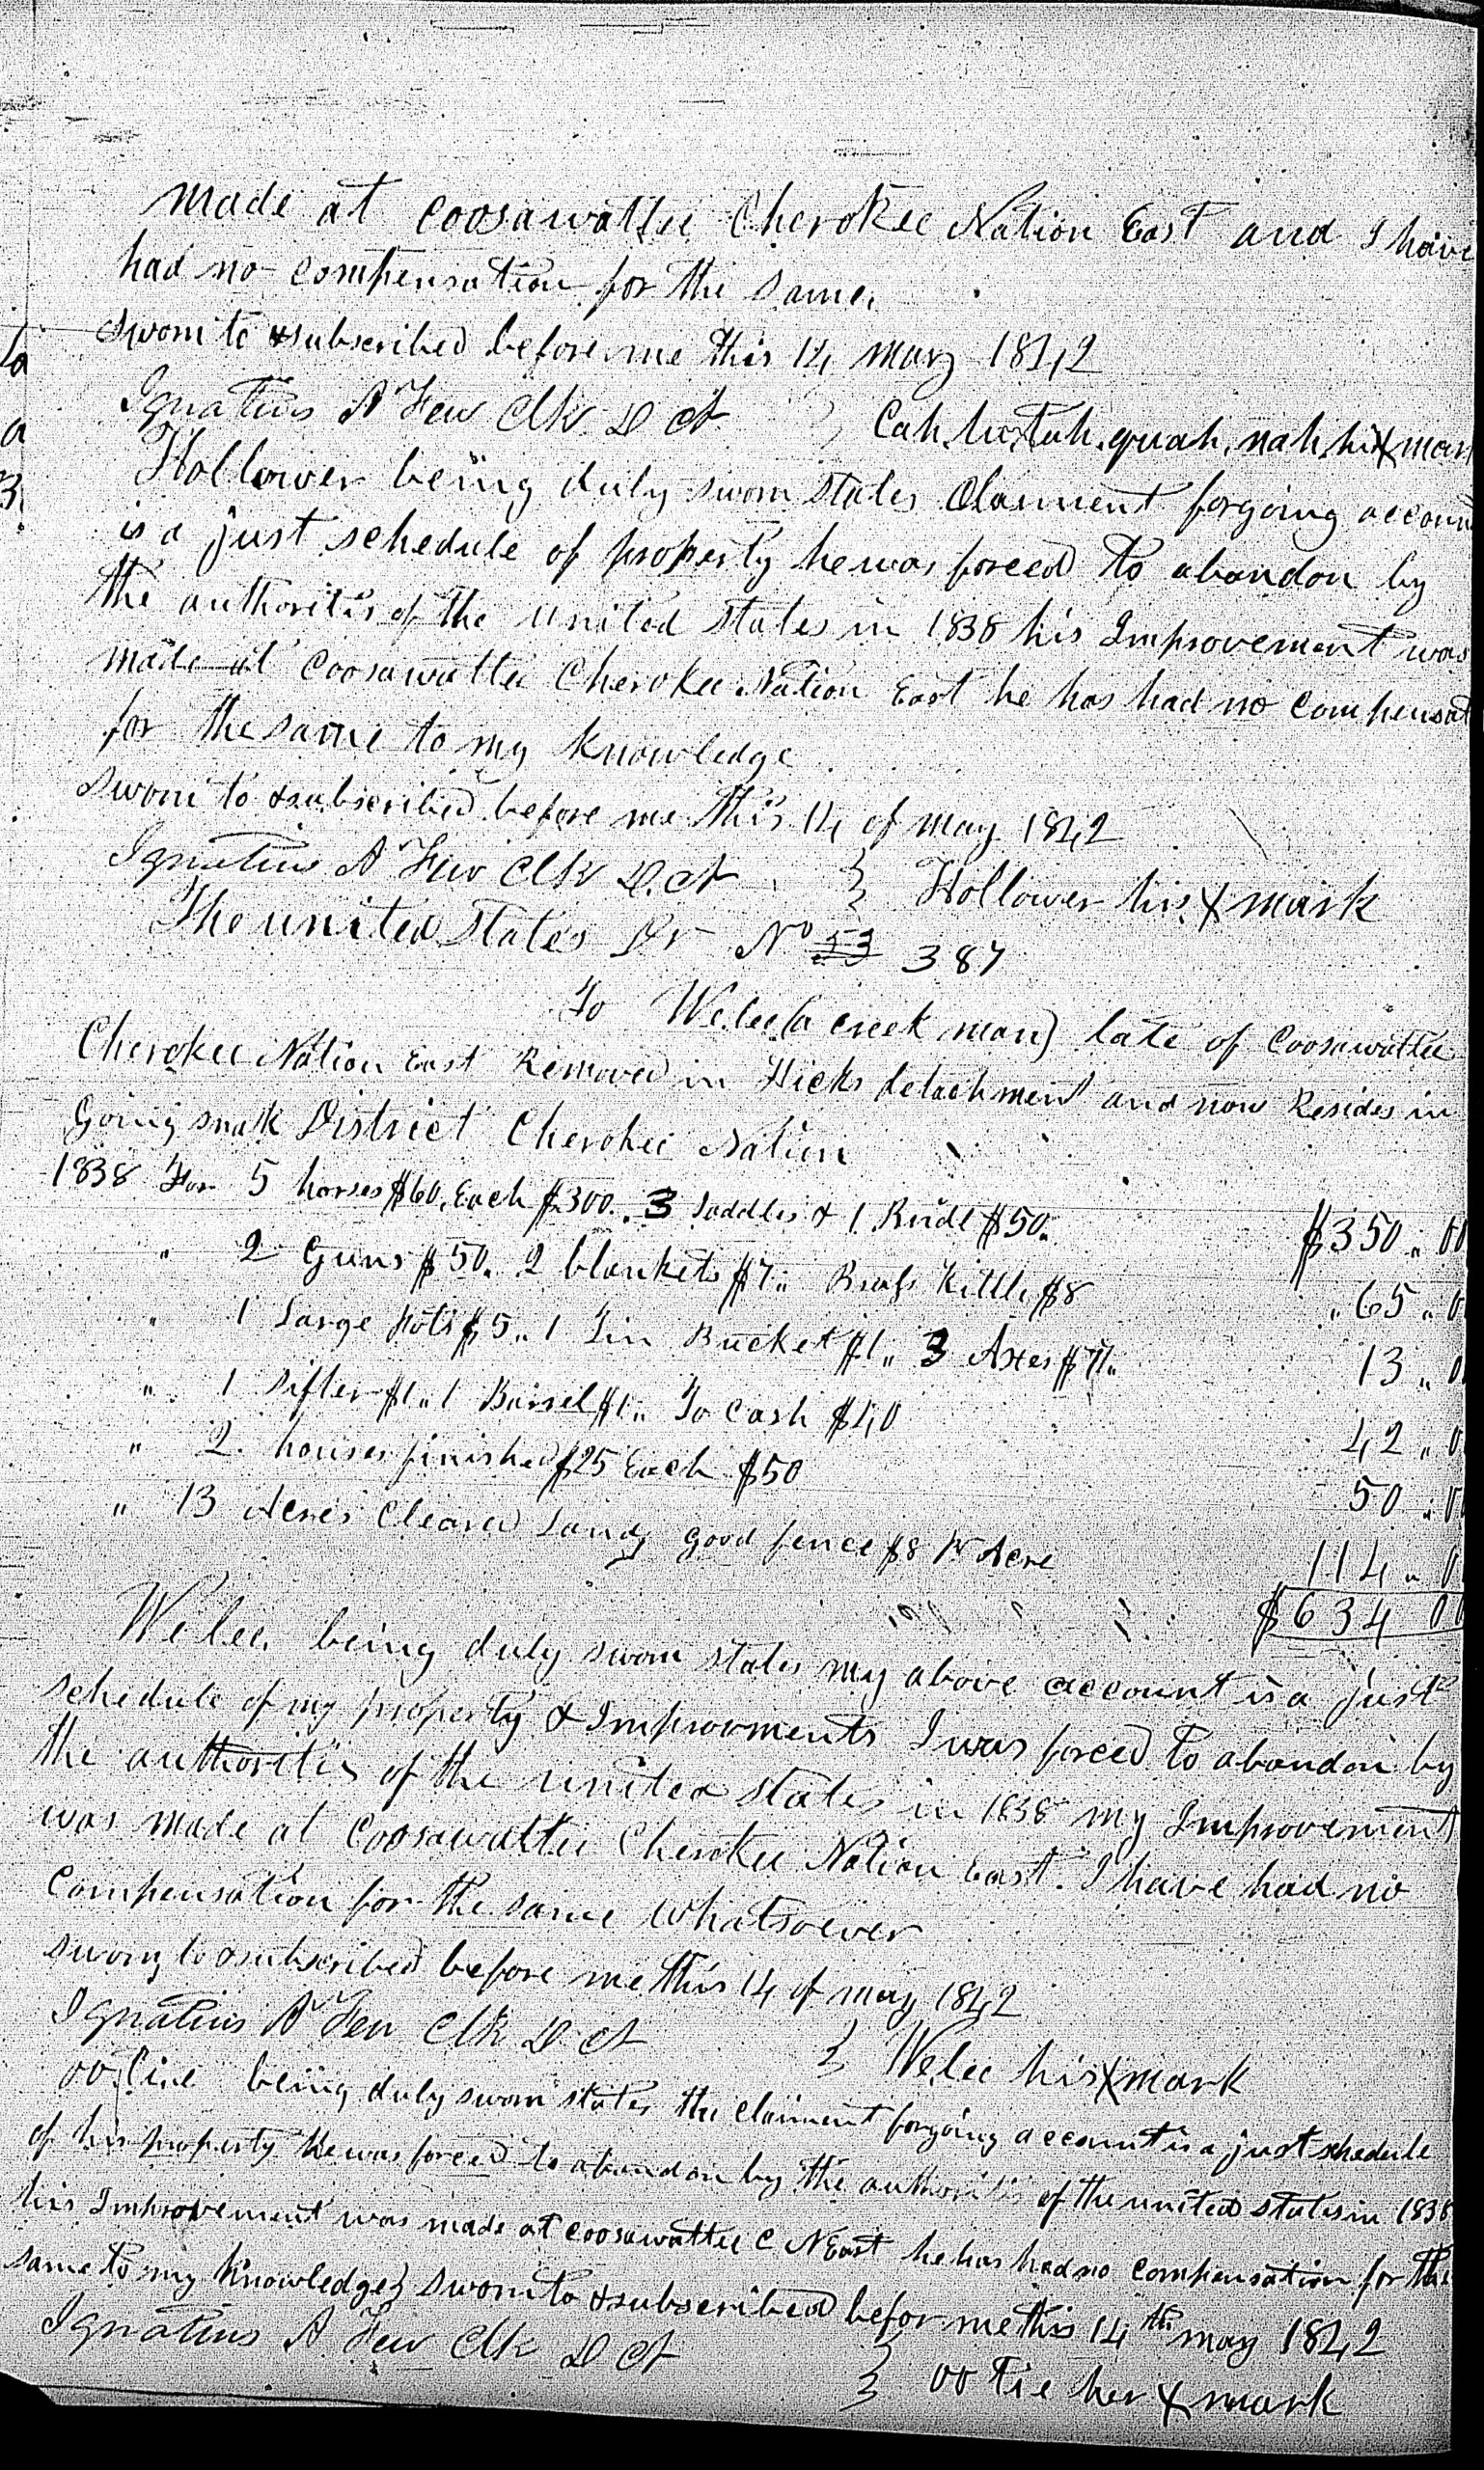 made at Coosawattee Cherokee Nation East and I have
had no compensation for the same.
Sworn to & subscribed before me this 14 may 1842
Ignatius A Few Clk D Ct } Cah.hu.tah.quah.nah.his X mark
Hollower being duly sworn states Claiment forgoing account
is a just schedule of property he was forced to abandon by
the authoritis of the united states in 1838 his Improvement was
made at Coosawattee Cherokee Nation East he has had no compensat
for the same to my knowledge
Sworn to & subscribed before me this 14 of may 1842
Ignatius A Few Clk D. Ct } Hollower his X mark
The united States Dr No 53 387
To We.lee (a creek man) late of Coosawattee
Cherokee Nation East Removed in Hicks detachment and now Resides in
Going snak District Cherokee Nation
1838 For 5 horses $60. Each $300. 3 Saddles & 1 Bridl $50. $350 .. 00
" 2 Guns $50. 2 blankets $7.. Brass Kittle $8 " 65 .. 0
" 1 Large pots $5.. 1 Tin Bucket $1.. 3 Axes $7.. 13 .. 0
" 1 Sifter $1.. 1 Barrel $1.. To Cash $40 42 .. 0
" 2 houses finished $25 Each $50 50 .. 0
" 13 Acres Cleared Land, good fence $8 Pr Acre 114 .. 0
$634 00
We.lee. being duly sworn states my above account is a just
schedule of my property & Improvments I was forced to abandon by
the authoritis of the united states in 1838 my Improvement
was made at Coosawattee Cherokee Nation East. I have had no
Compensation for the same whatsoever
sworn to & subscribed before me this 14 of may 1842
Ignatius A Few Clk D Ct } We.lee his X mark
oo.tie being duly sworn states the claiment forgoing account is a just schedule
of his property he was forced to abandon by the authoritis of the united states in 1838
his Improvement was made at Coosawattee C N East he has had no compensation for the
same to my knowledge } sworn to & subscribed befor me this 14th may 1842
Ignatius A Few Clk D Ct } oo tie her X mark